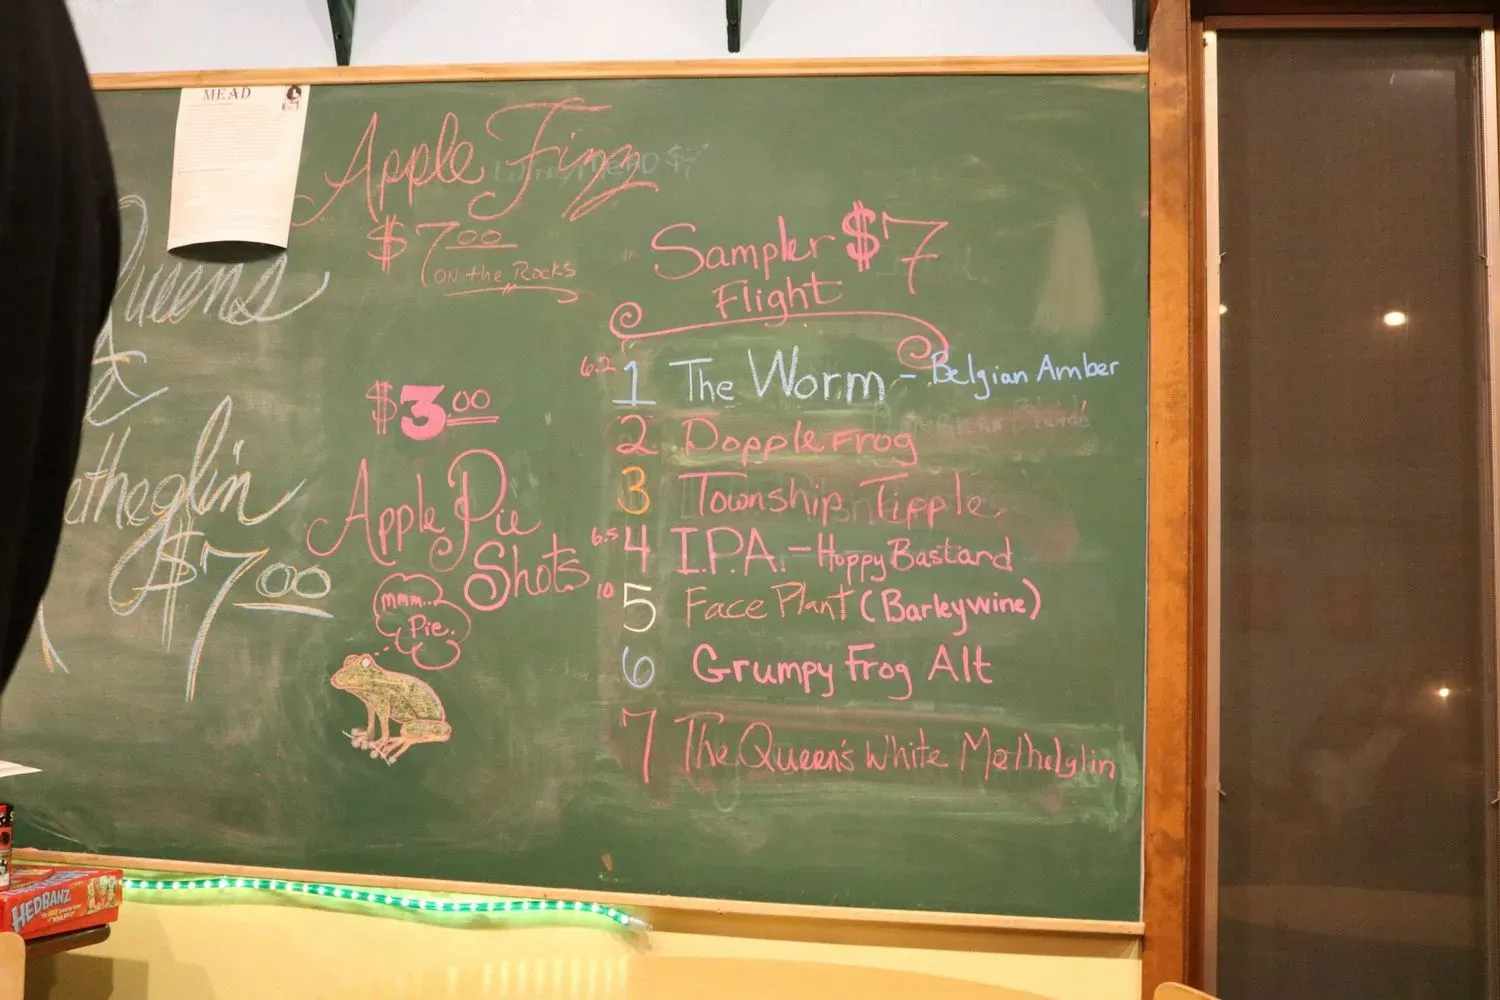 MEAD
Apple Fizz
Wine/MEAD $7
$7.00
on the Rocks
Queens
etheglin
$7.00
$3.00
Apple Pie
Shots
mmm...
Pie.
Sampler $7
Flight
6.2 1 The Worm - Belgian Amber
2 Dopple Frog
3 Township Tipple
6.5 4 I.P.A. - Hoppy Bastard
10 5 Face Plant (Barleywine)
6 Grumpy Frog Alt
7 The Queen's White Methelglin
HEDBANZ